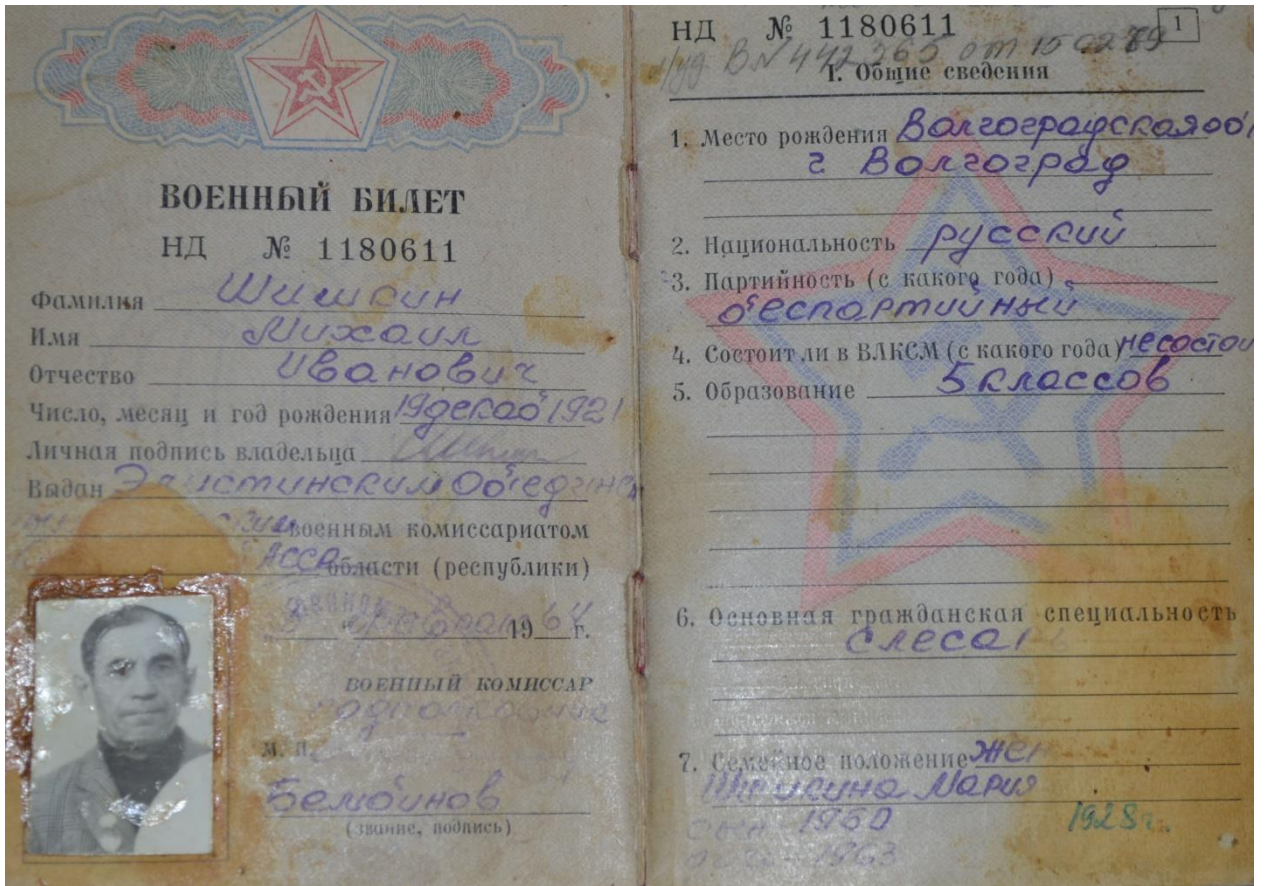 ВОЕННЫЙ БИЛЕТ
НД № 1180611
Фамилия Шишкин
Имя Михаил
Отчество Иванович
Число, месяц и год рождения 19 декаб 1921
Личная подпись владельца
Выдан
военным комиссариатом
АССР области (республики)
19 64 г.
ВОЕННЫЙ КОМИССАР
подполковник
М. П.
Бембинов
(звание, подпись)
НД № 1180611 1
В № 442265 от 15 02 89
I. Общие сведения
1. Место рождения Волгоградская об
г. Волгоград
2. Национальность русский
3. Партийность (с какого года)
беспартийный
4. Состоит ли в ВЛКСМ (с какого года) не состои
5. Образование 5 классов
6. Основная гражданская специальность
слеса
7. Семейное положение жен
Шишкина Мария
сын 1960 1928 г.
1963